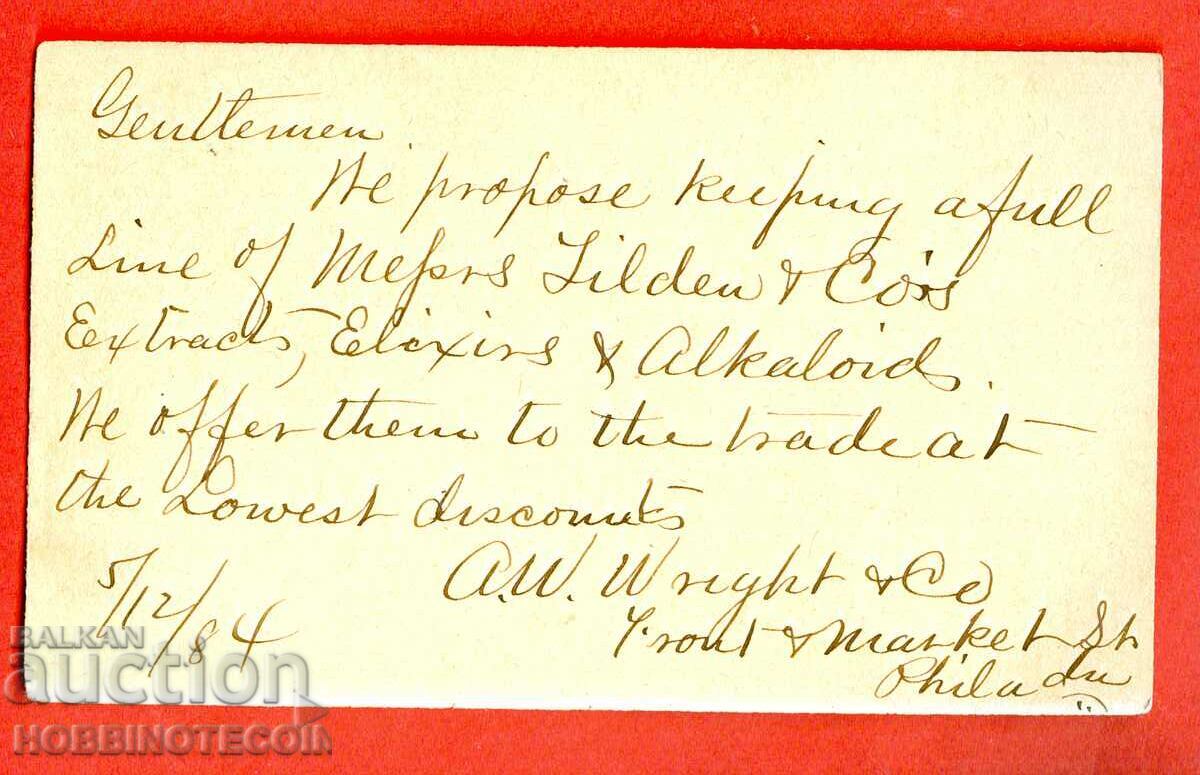 Gentlemen
We propose keeping a full
Line of Messrs Tilden & Co's
Extracts, Elixirs & Alkaloids.
We offer them to the trade at
the Lowest discounts
A.W. Wright & Co
5/12/84
Front & Market St
Philada
BALKAN
auction
HOBBINOTECOIN